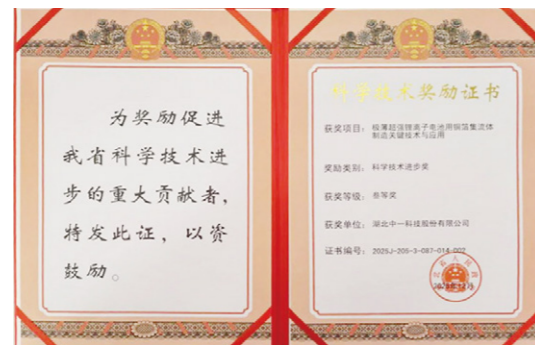 为奖励促进
我省科学技术进
步的重大贡献者，
特发此证，以资
鼓励。
科学技术奖励证书
获奖项目：极薄超强锂离子电池用铜箔集流体
制造关键技术与应用
奖励类别：科学技术进步奖
获奖等级：叁等奖
获奖单位：湖北中一科技股份有限公司
证书编号：